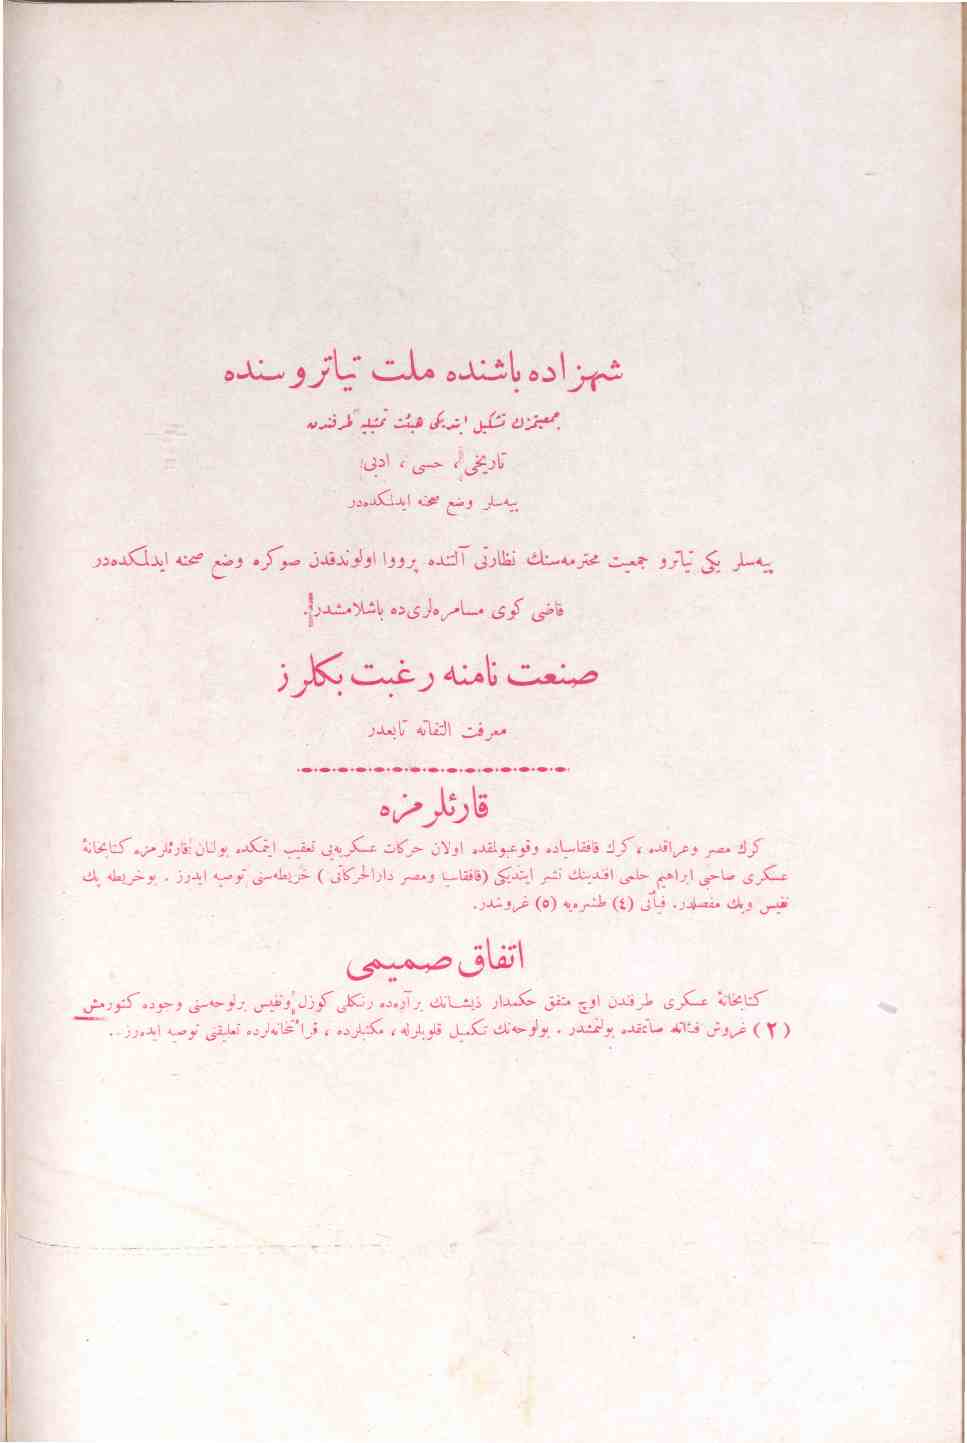 شهزاده باشنده ملت تياتروسنده
جمعيتمزك تشكيل ايتديكى هيئت تمثيليه طرفندن
تاريخى ، حسى ، ادبى
پيه‌سلر وضع صحنه ايدلمكده‌در
پيه‌سلر يكى تياترو جمعيت محترمه‌سنك نظارتى آلتنده پرووا اولوندقدن صوكره وضع صحنه ايدلمكده‌در
قاضى كوى مسامره‌لرى‌ده باشلامشدر .
صنعت نامنه رغبت بكلرز
معرفت التفاته تابعدر
قارئلرمزه
كرك مصر وعراقده ، كرك قافقاسياده وقوعبولمقده اولان حركات عسكريه‌يى تعقيب ايتمكده بولنان قارئلرمزه كتابخانۀ
عسكرى صاحبى ابراهيم حلمى افندينك نشر ايتديكى (قافقاسيا ومصر دارالحركاتى) خريطه‌سنى توصيه ايدرز . بوخريطه پك
نفيس وپك مفصلدر . فيأتى (٤) طشره‌يه (٥) غروشدر.
اتفاق صميمى
كتابخانۀ عسكرى طرفندن اوچ متفق حكمدار ذيشانك بر آره‌ده رنكلى كوزل ونفيس برلوحه‌سنى وجوده كتورمش
(٢) غروش فيئاته صاتمقده بولنمشدر . بولوحه‌نك تكميل قلوبلرله ، مكتبلرده ، قرائتخانه‌لرده تعليقنى توصيه ايده‌رز ..